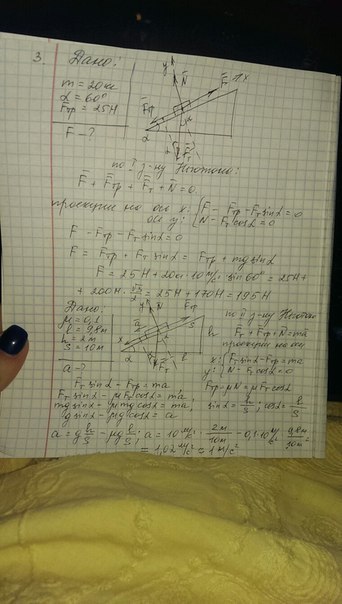 3. Дано:
m = 20 кг
α = 60°
Fтр = 25 Н
F - ?
y N F x
Fтр
α
по I з-ну Ньютона:
F + Fтр + Fт + N = 0
проекции на ось x: F - Fтр - Fт sinα = 0
ось y: N - Fт cosα = 0
F - Fтр - Fт sinα = 0
F = Fтр + Fт sinα = Fтр + mg sinα
F = 25Н + 20кг · 10 м/с² · sin 60° = 25Н +
+ 200Н · √3/2 = 25Н + 170Н = 195Н
Дано:
μ = 0,1
l = 9,8м
h = 2м
S = 10м
a - ?
y N Fтр
a S h
x α Fт l
по II з-ну Ньютона
Fт + Fтр + N = ma
проекции на оси
x: Fт sinα - Fтр = ma
y: N - Fт cosα = 0
Fт sinα - Fтр = ma; Fтр = μN = μFт cosα
Fт sinα - μFт cosα = ma; sinα = h/S; cosα = l/S
mg sinα - μmg cosα = ma;
g sinα - μg cosα = a
a = g h/S - μg l/S; a = 10 м/с² · 2м/10м - 0,1·10 м/с² · 9,8м/10м =
= 1,02 м/с² ≈ 1 м/с²